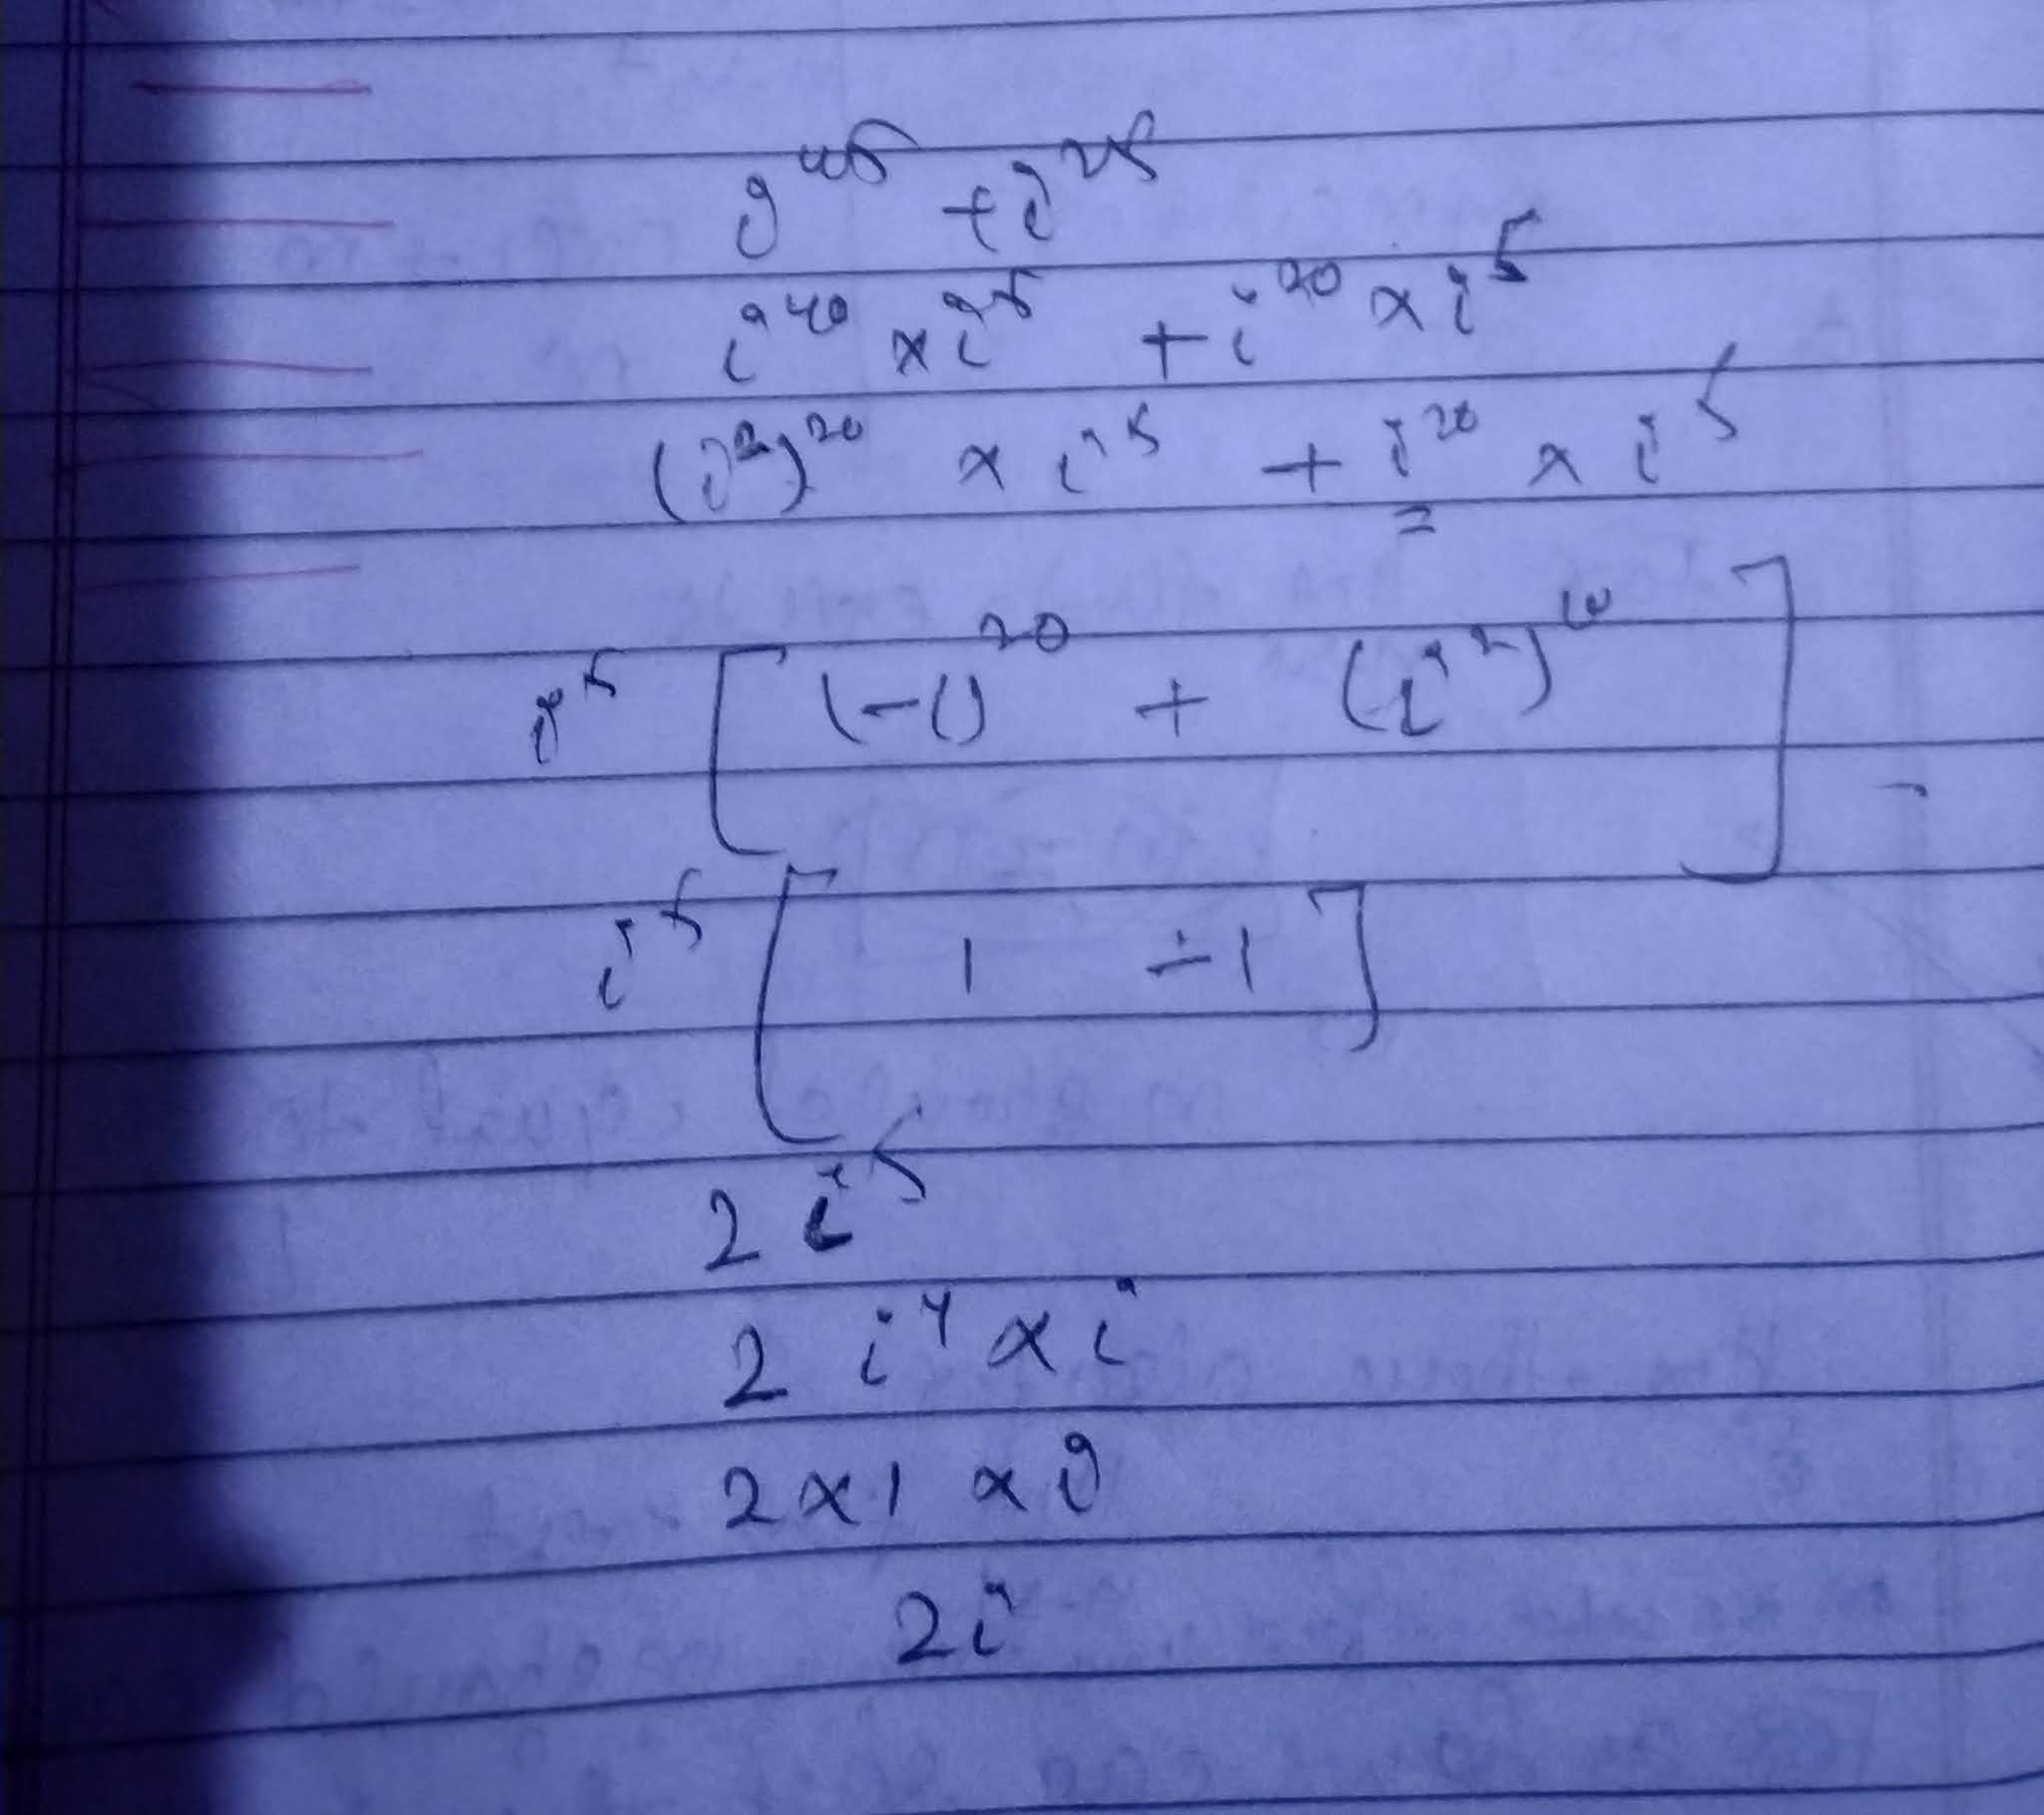 i⁴⁵ + i²⁵
i⁴⁰ × i⁵ + i²⁰ × i⁵
(i²)²⁰ × i⁵ + i²⁰ × i⁵
=
i⁵ [ (-1)²⁰ + (i²)¹⁰ ]
i⁵ [ 1 ÷ 1 ]
2 i⁵
2 i⁴ × i
2 × 1 × i
2i